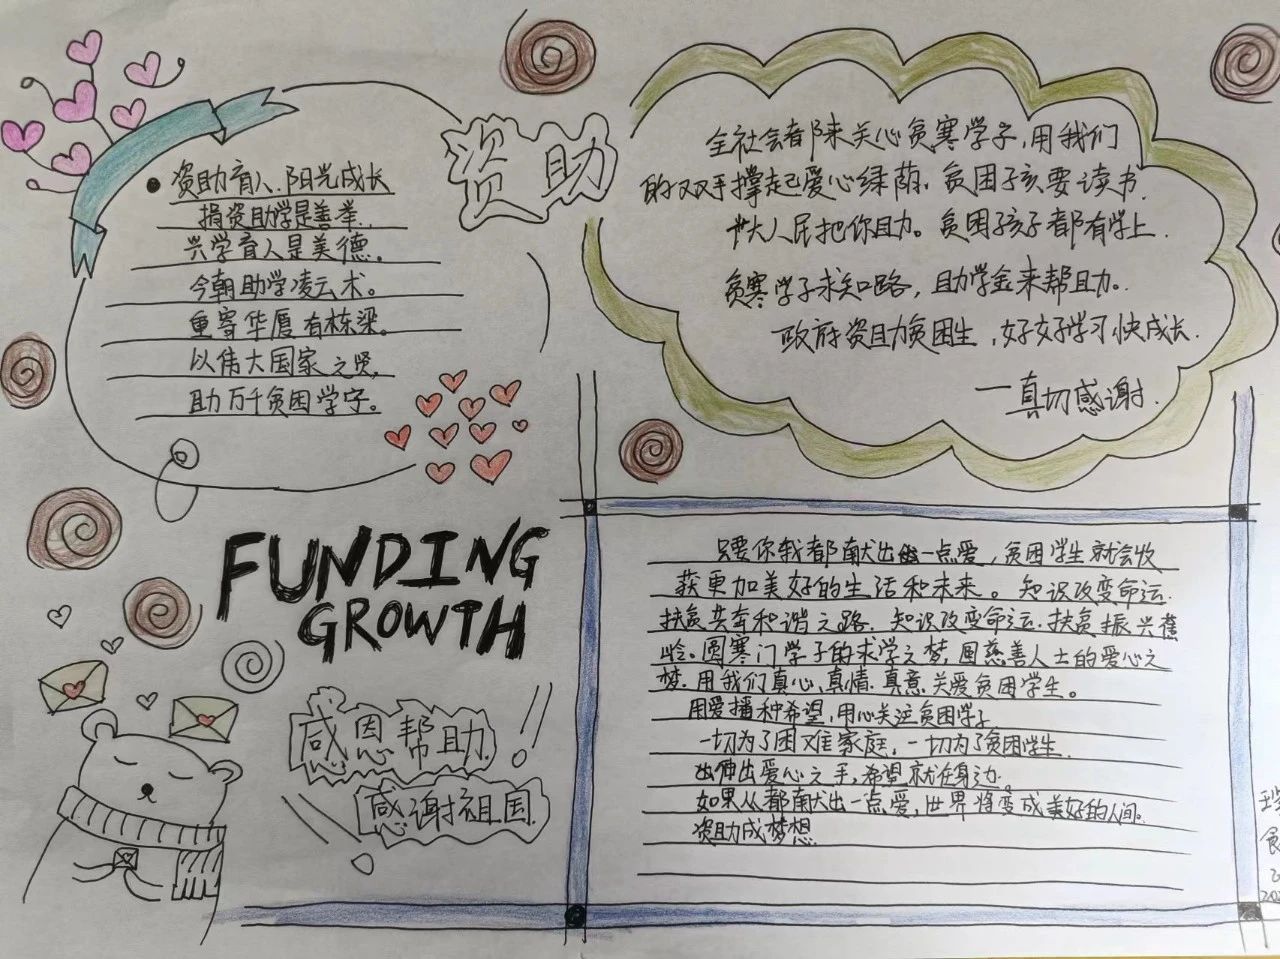 资助
资助育人.阳光成长
捐资助学是善举.
兴学育人是美德。
今朝助学凌云术。
重寄华厦有栋梁。
以伟大国家之贤,
助万千贫困学字。
全社会都来关心贫寒学子,用我们
的双手撑起爱心绿荫.贫困子孩要读书.
大人民把你助。贫困孩子都有学上.
贫寒学子求知路,助学金来帮助.
政府资助贫困生,好好学习快成长.
一真切感谢.
FUNDING
GROWTH
感恩帮助.
感谢祖国.
只要你我都献出一点爱,贫困学生就会收
获更加美好的生活和未来。知识改变命运.
扶贫共奔和谐之路.知识改变命运.扶贫振兴
岭。圆寒门学子的求学之梦,圆慈善人士的爱心之
梦.用我们真心,真情.真意关爱贫困学生。
用爱播种希望,用心关注贫困学子
一切为了困难家庭,一切为了贫困学生.
伸出爱心之手,希望就在身边.
如果人都献出一点爱,世界将变成美好的人间.
资助成梦想.